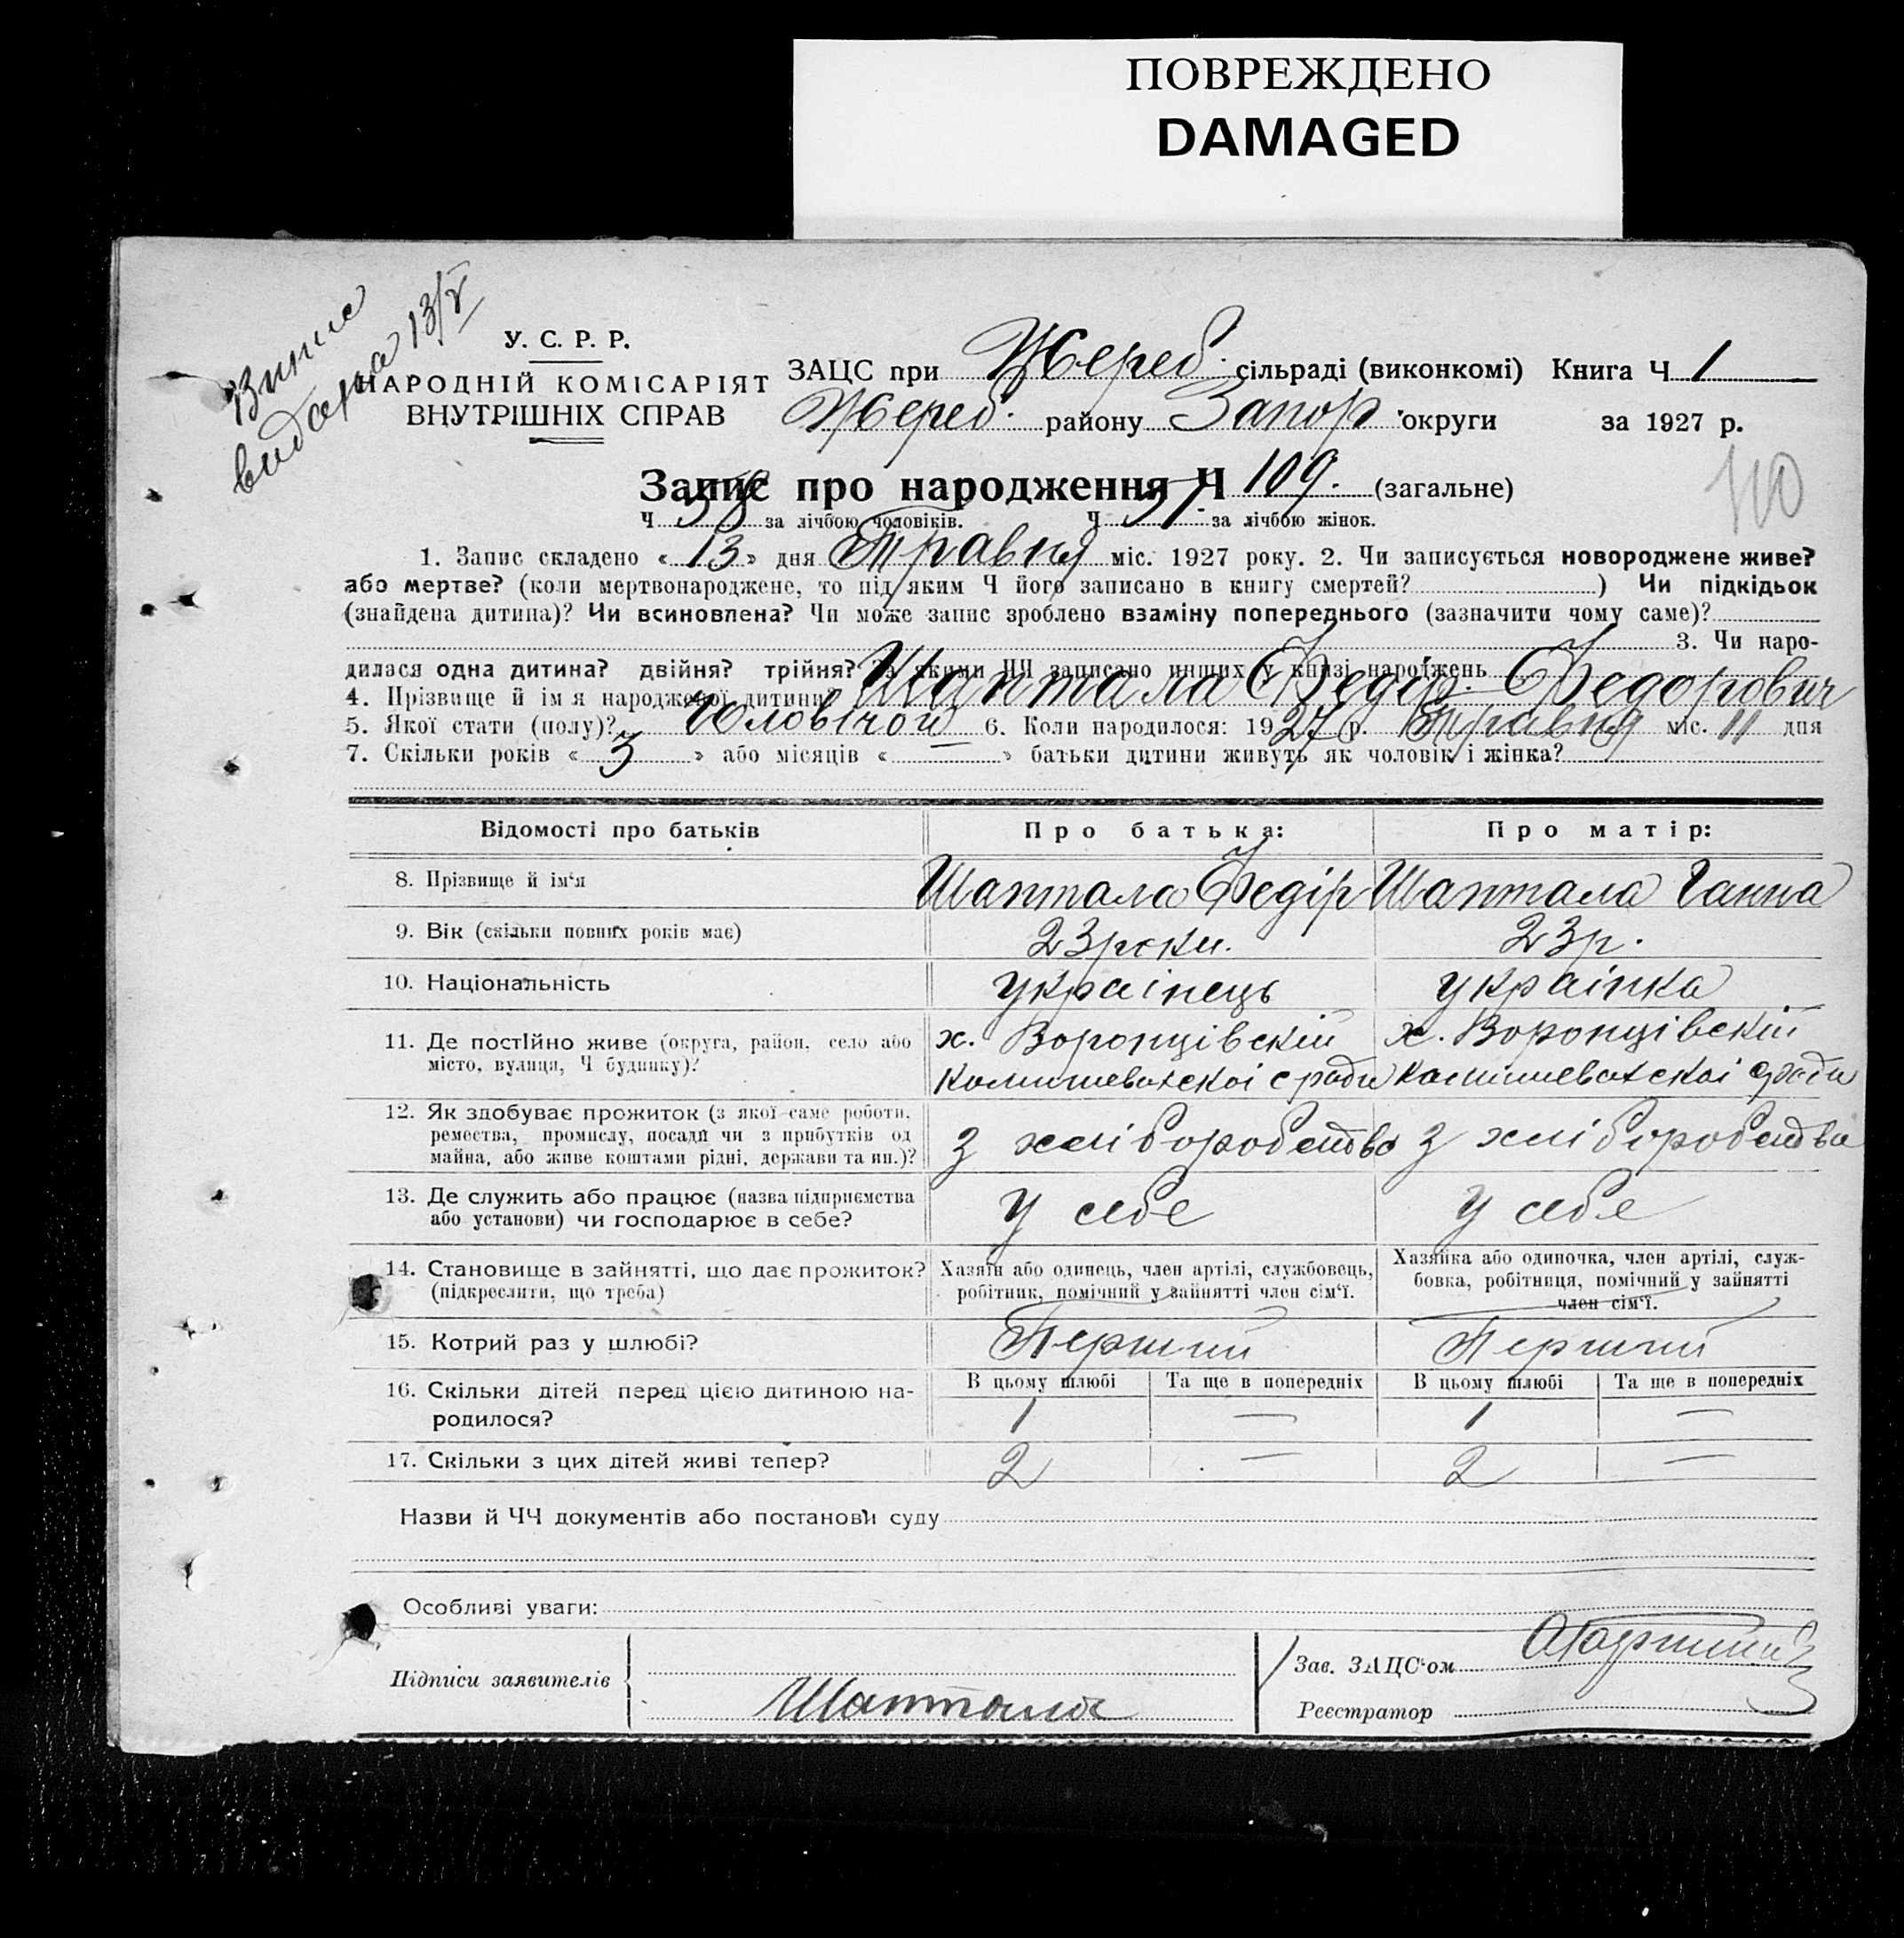 ПОВРЕЖДЕНО
DAMAGED
Випис
видана 13/V
У. С. Р. Р.
НАРОДНІЙ КОМІСАРІЯТ
ВНУТРІШНІХ СПРАВ
ЗАЦС при Жереб. сільраді (виконкомі) Книга Ч 1
Жереб. району Запор. округи за 1927 р.
110
Запис про народження Ч 109. (загальне)
Ч 58 за лічбою чоловіків. Ч 51 за лічбою жінок.
1. Запис складено « 13 » дня Травня міс. 1927 року. 2. Чи записується новороджене живе?
або мертве? (коли мертвонароджене, то під яким Ч його записано в книгу смертей? ) Чи підкідьок
(знайдена дитина)? Чи всиновлена? Чи може запис зроблено взаміну попереднього (зазначити чому саме)?
3. Чи наро-
дилася одна дитина? двійня? трійня? За якими ЧЧ записано инших у книзі народжень
4. Прізвище й імя народженої дитини? Шаптала Федір Федорович
5. Якої стати (полу)? Чоловічої 6. Коли народилося: 1927 р. Травня міс. 11 дня
7. Скільки років « 3 » або місяців « — » батьки дитини живуть як чоловік і жінка?
Відомості про батьків Про батька: Про матір:
8. Прізвище й ім‘я Шаптала Федір Шаптала Ганна
9. Вік (скільки повних років має) 23 роки. 23 р.
10. Національність українець українка
11. Де постійно живе (округа, район, село або місто, вулиця, Ч будинку)? х. Воронцівскій х. Воронцівскій
Комишеватскоі с ради Комишеватскоі с ради
12. Як здобуває прожиток (з якої саме роботи,
ремества, промислу, посади чи з прибутків од
майна, або живе коштами рідні, держави та ин.)? з хліборобства з хліборобства
13. Де служить або працює (назва підприємства
або установи) чи господарює в себе? у себе у себе
14. Становище в зайнятті, що дає прожиток?
(підкреслити, що треба)
Хазяїн або одинець, член артілі, службовець,
робітник, помічний у зайнятті член сім‘ї.
Хазяйка або одиночка, член артілі, служ-
бовка, робітниця, помічний у зайнятті
член сім‘ї.
15. Котрий раз у шлюбі? Перший Перший
16. Скільки дітей перед цією дитиною на-
родилося?
В цьому шлюбі Та ще в попередніх В цьому шлюбі Та ще в попередніх
1 — 1 —
17. Скільки з цих дітей живі тепер? 2 — 2 —
Назви й ЧЧ документів або постанови суду
Особливі уваги:
Підписи заявителів Шаптала
Зав. ЗАЦС‘ом
Реєстратор